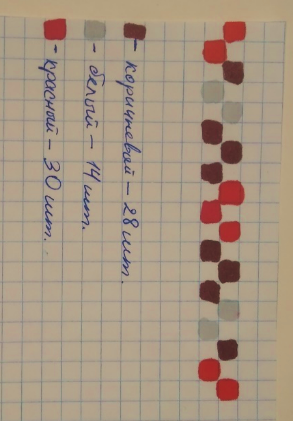 - коричневый - 28 шт.
- белый - 14 шт.
- красный - 30 шт.